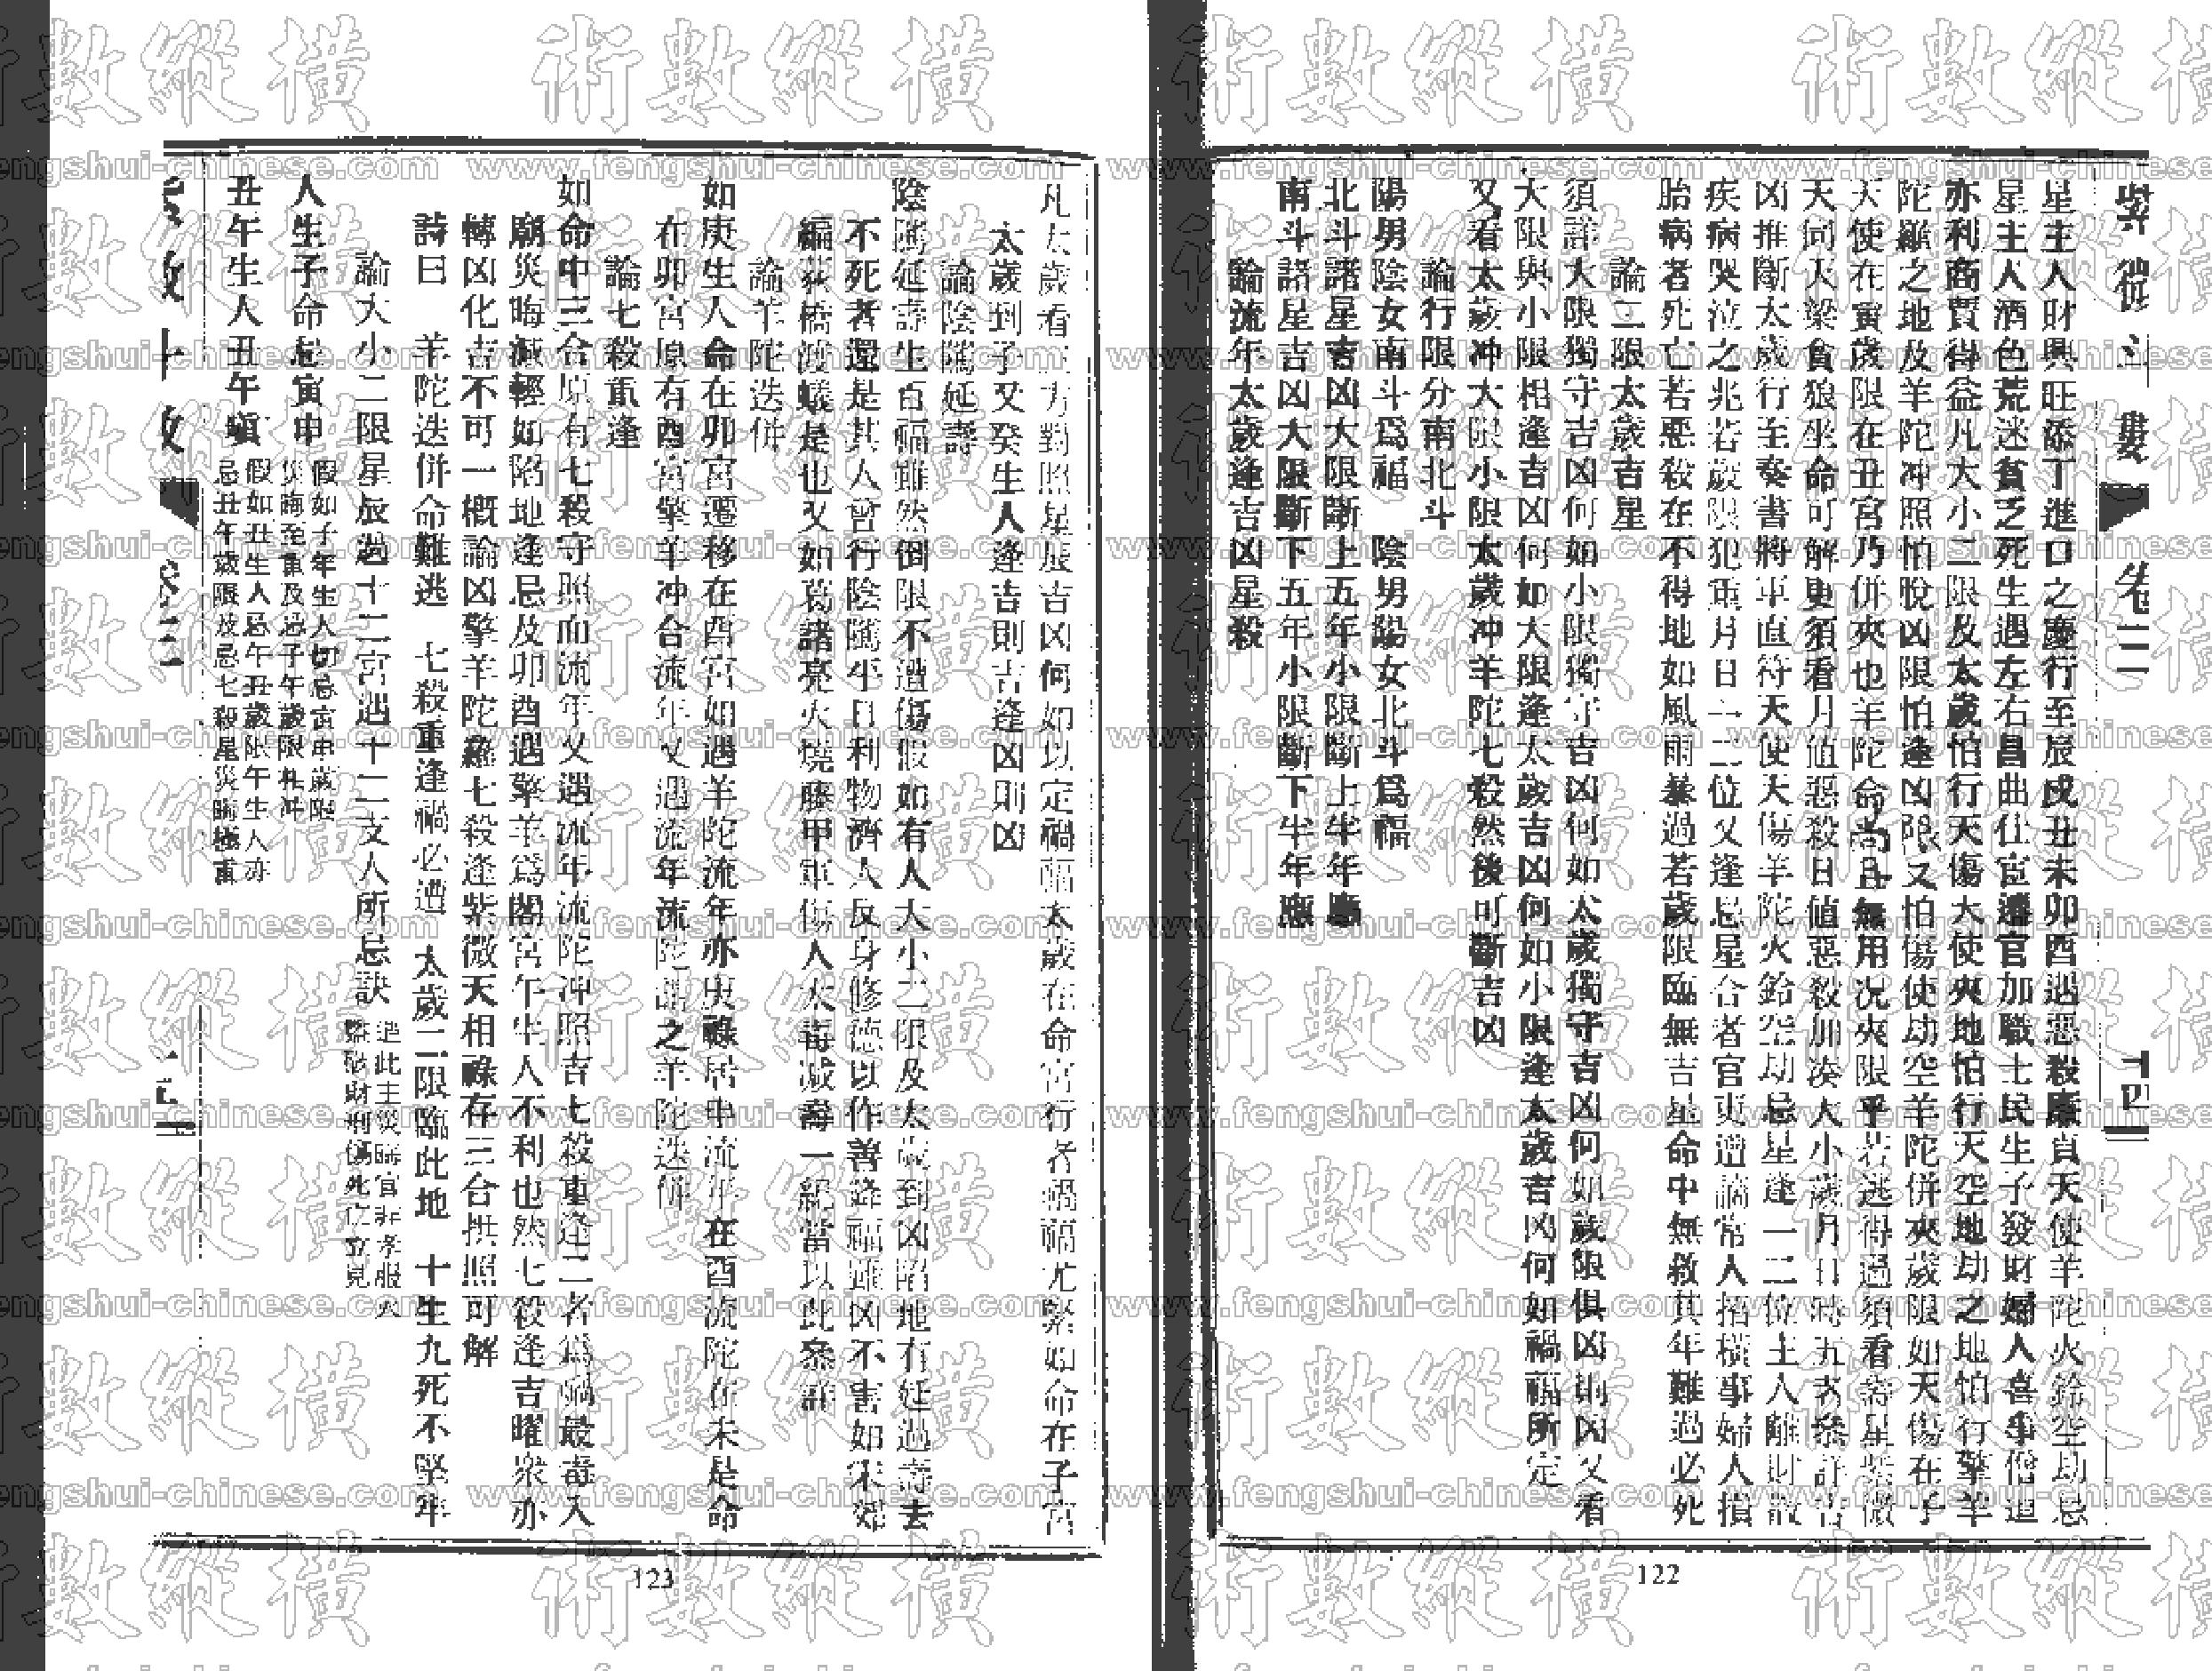 紫微斗數 卷三 十四
星主人財興旺添丁進口之慶行至辰戌丑未卯酉遇惡殺廉貞天使羊陀火鈴空劫忌
星主人酒色荒迷貧乏死生遇左右昌曲仕宦遷官加職士民生子發財婦人喜事僧道
亦利商賈得益凡大小二限及太歲怕行天傷天使夾地怕行天空地劫之地怕行擎羊
陀羅之地及羊陀冲照怕脫凶限怕逢凶限又怕傷使劫空羊陀併夾歲限如天傷在子
天使在寅歲限在丑宮乃併夾也羊陀命尚且無用况夾限乎若逃得過須看壽星紫微
天同天梁貪狼坐命可解更須看月值惡殺日值惡殺加湊大小歲月日時五者叅詳吉
凶推斷太歲行至奏書將軍直符天使天傷羊陀火鈴空劫忌星逢一二位主人離財散
疾病哭泣之兆若歲限犯重月日一二位又逢忌星合者官吏遭謫常人招橫事婦人損
胎病者死亡若惡殺在不得地如風雨暴過若歲限臨無吉星命中無救其年難過必死
論二限太歲吉星
須詳大限獨守吉凶何如小限獨守吉凶何如太歲獨守吉凶何如歲限俱凶則凶又看
大限與小限相逢吉凶何如大限逢太歲吉凶何如小限逢太歲吉凶何如禍福所定
又看太歲冲大限小限太歲冲羊陀七殺然後可斷吉凶
論行限分南北斗
陽男陰女南斗爲福 陰男陽女北斗爲福
北斗諸星吉凶大限斷上五年小限斷上半年應
南斗諸星吉凶大限斷下五年小限斷下半年應
論流年太歲逢吉凶星殺
122
凡太歲看三方對照星辰吉凶何如以定禍福太歲在命宮行者禍福尤緊如命在子宮
太歲到子又癸生人逢吉則吉逢凶則凶
論陰騭延壽
陰騭延壽生百福雖然倒限不遭傷假如有人大小二限及太歲到凶陷地有延過壽去
不死者還是其人曾行陰騭平日利物濟人反身修德以作善降福雖凶不害如宋郊
編荻橋渡蟻是也又如葛諸亮火燒藤甲軍傷人太毒減壽一紀當以此叅詳
論羊陀迭併
如庚生人命在卯宮遷移在酉宮如遇羊陀流年亦庚祿居申流年在酉流陀在未是命
在卯宮原有酉宮擎羊冲合流年又遇流年流陀謂之羊陀迭併
論七殺重逢
如命中三合原有七殺守照而流年又遇流年流陀冲照吉七殺重逢二者爲禍最毒入
廟災晦減輕如陷地逢忌及卯酉遇擎羊爲閣宮午生人不利也然七殺逢吉曜衆亦
轉凶化吉不可一概論凶擎羊陀羅七殺逢紫微天相祿存三合拱照可解
詩曰 羊陀迭併命難逃 七殺重逢禍必遭 太歲二限臨此地 十生九死不堅牢
論大小二限星辰過十二宮遇十二支人所忌訣
逢此主災晦官非孝服火
盜破財刑傷死亡立見
人生子命忌寅申
假如子年生人切忌寅申歲限
災晦至重及忌子午歲限相冲
丑午生人丑午嗔
假如丑生人忌午丑歲限午生人亦
忌丑午歲限及忌七殺星災晦極重
卷三
123